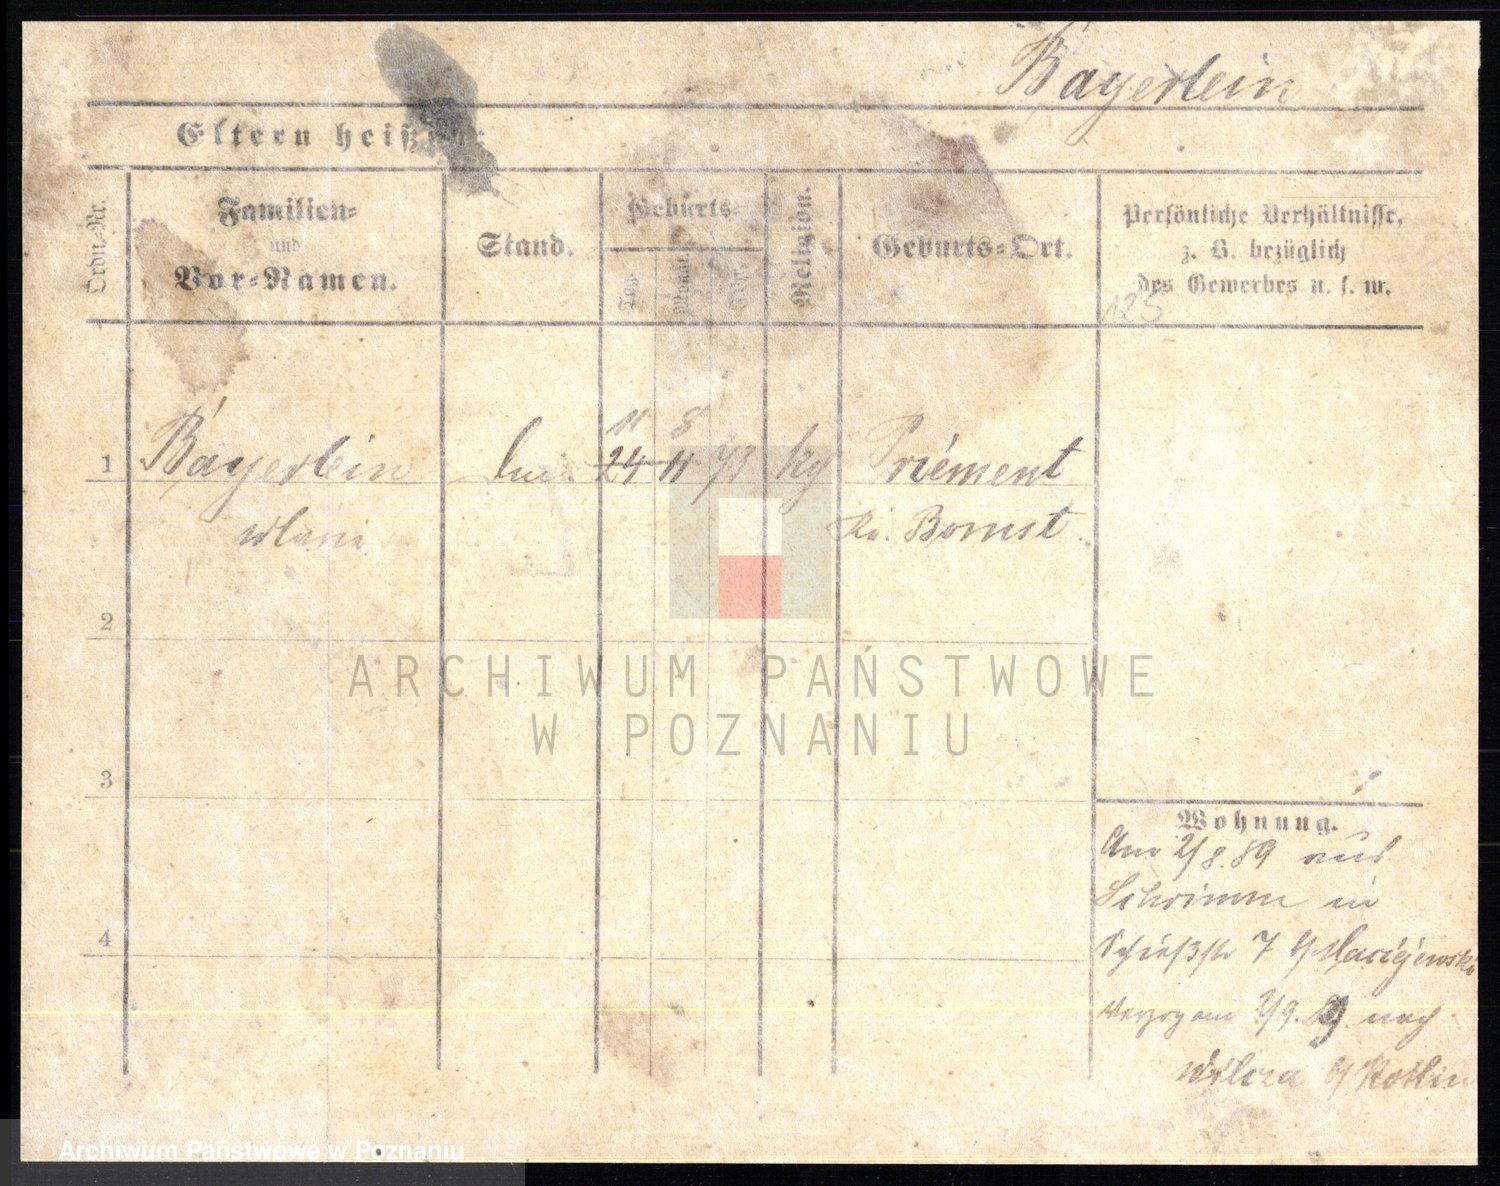 Bayerlein
Eltern heißen:
Ordn.-Nr.
Familien-
und
Vor-Namen.
Stand.
Geburts-
Tag.
Monat.
Jahr.
Religion.
Geburts-Ort.
Persönliche Verhältnisse,
z. B. bezüglich
des Gewerbes u. s. w.
125
11 8
1 Bayerlein 24 11 73 Priement
Kr. Bomst.
2
3
4
Wohnung.
Am 2/8.89 aus
Schrimm in
Schießstr 7 b/ Maciejewski
Verzogen 2/9. 89. nach
Wilcza b/ Kotlin
ARCHIWUM PAŃSTWOWE
W POZNANIU
Archiwum Państwowe w Poznaniu